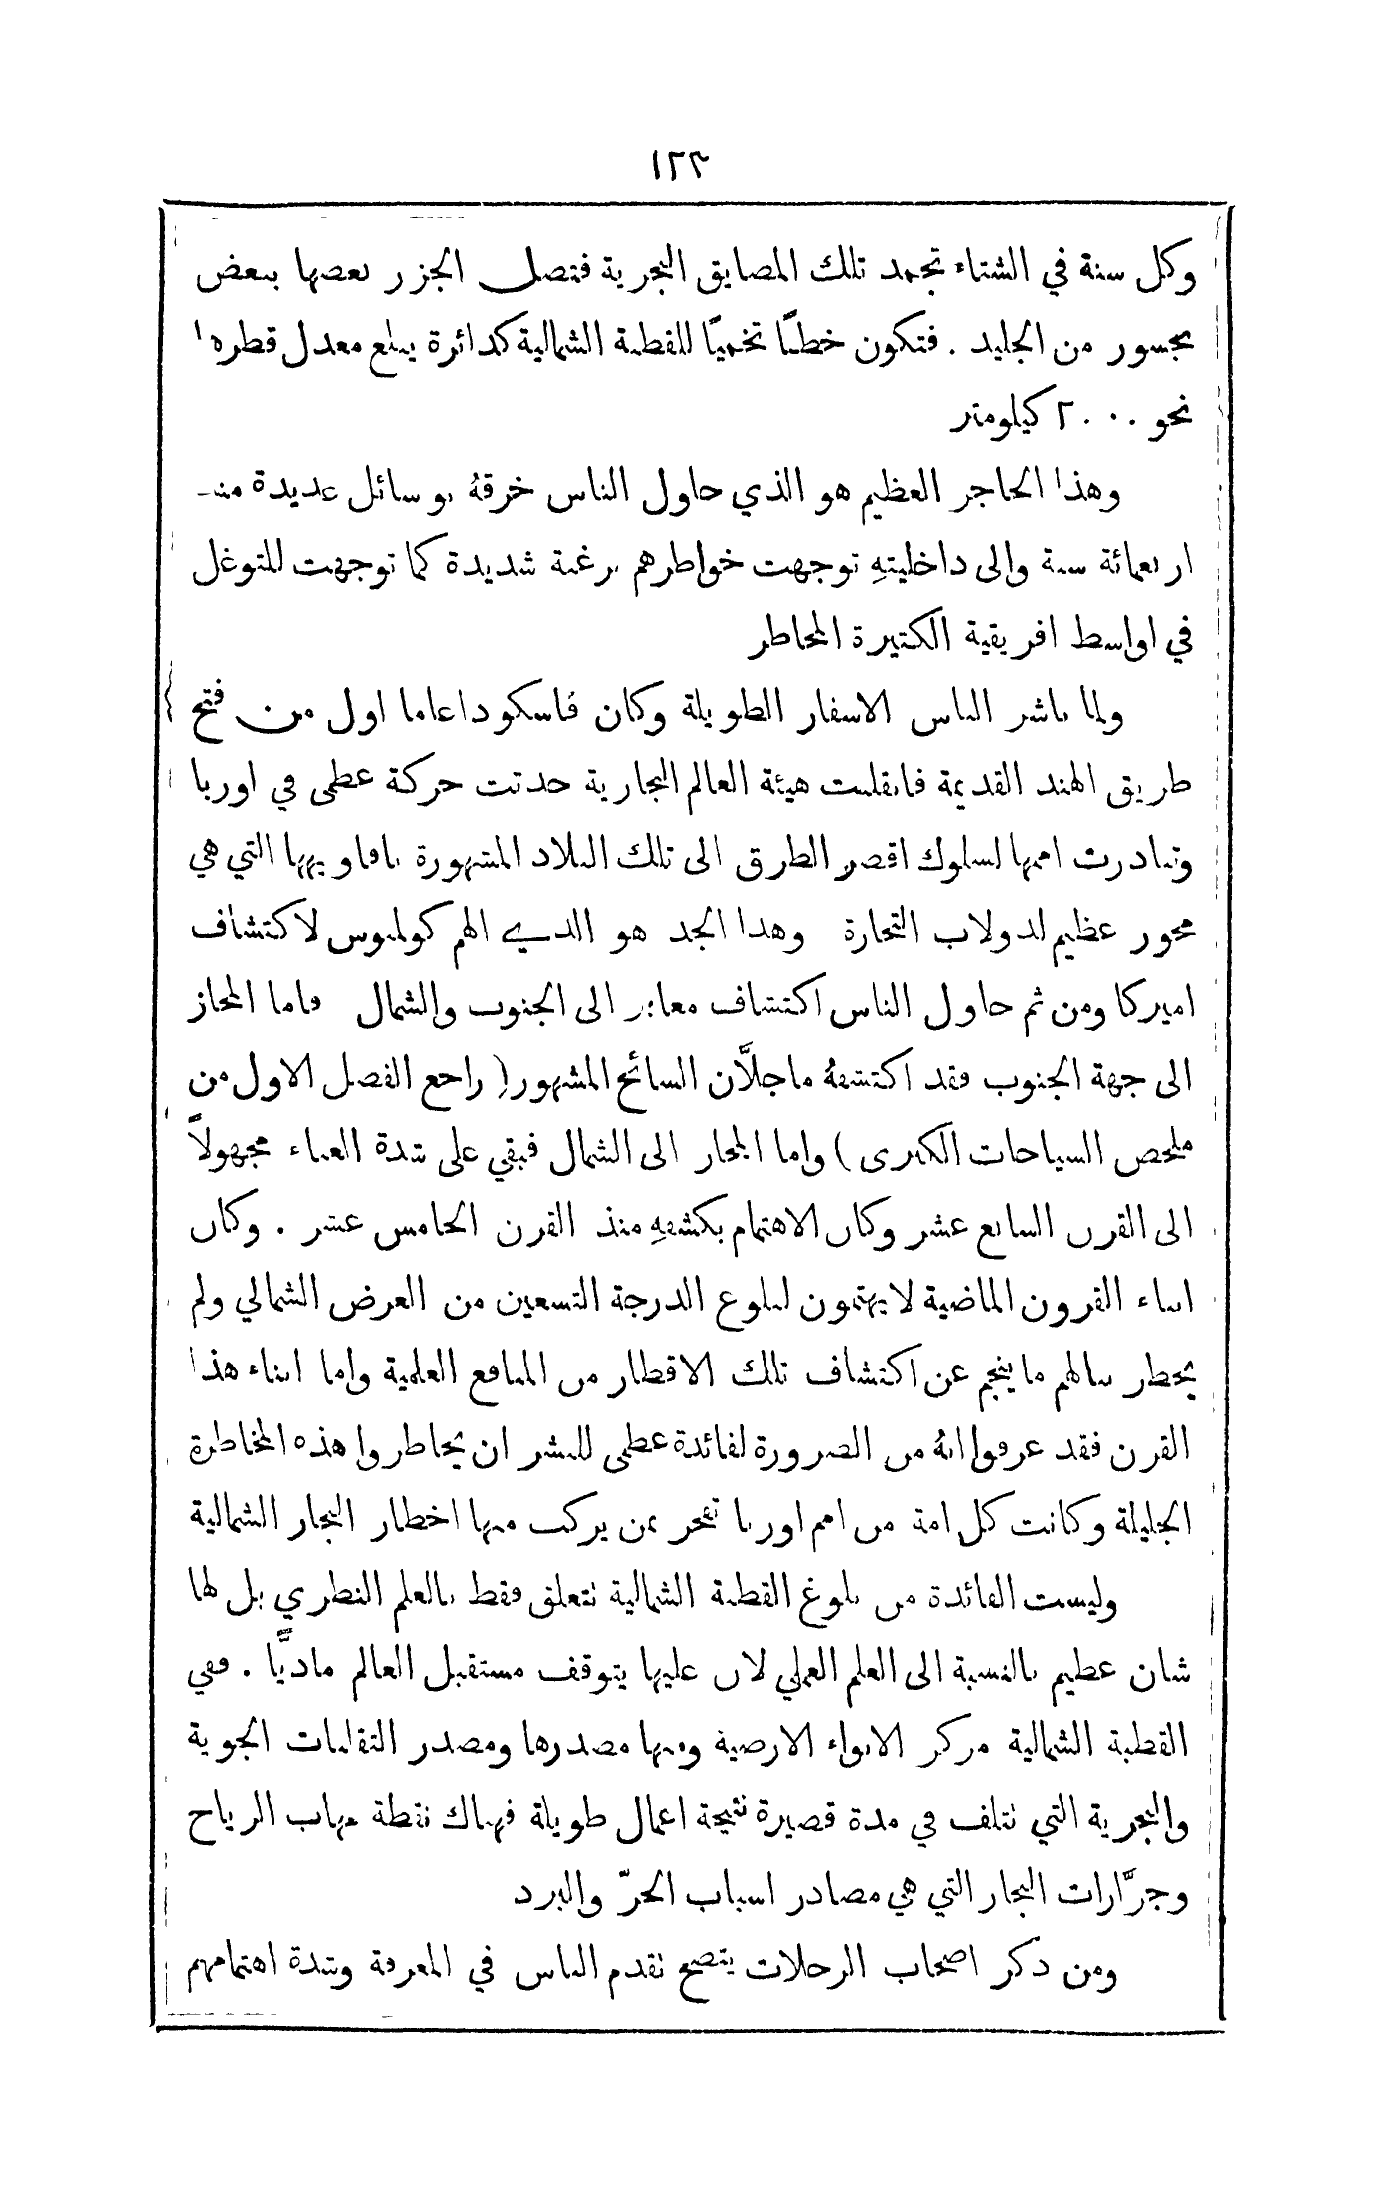 ١٢٣
وكل سنة في الشتاء تجمد تلك المضايق البحرية فتصل الجزر بعضها ببعض
بجسور من الجليد . فتكون خطًّا تخميًّا للقطبة الشمالية كدائرة يبلغ معدل قطرها
نحو ٢٠٠٠ كيلومتر
وهذا الحاجز العظيم هو الذي حاول الناس خرقهُ بوسائل عديدة منذ
اربعمائة سنة والى داخليتهِ توجهت خواطرهم برغبة شديدة كما توجهت للتوغل
في اواسط افريقية الكثيرة المخاطر
ولما باشر الناس الاسفار الطويلة وكان فاسكو داغاما اول من فتح
طريق الهند القديمة فانقلبت هيئة العالم التجارية حدثت حركة عظمى في اوربا
وتبادرت اممها لسلوك اقصر الطرق الى تلك البلاد المشهورة بافاويهها التي هي
محور عظيم لدولاب التجارة وهذا الجد هو الذي الهم كولمبوس لاكتشاف
اميركا ومن ثم حاول الناس اكتشاف معابر الى الجنوب والشمال فاما المجاز
الى جهة الجنوب فقد اكتشفهُ ماجلاَّن السائح المشهور ( راجع الفصل الاول من
ملخص السياحات الكبرى ) واما المجاز الى الشمال فبقي على شدة العناء مجهولاً
الى القرن السابع عشر وكان الاهتمام بكشفهِ منذ القرن الخامس عشر . وكان
ابناء القرون الماضية لا يهتمون لبلوغ الدرجة التسعين من العرض الشمالي ولم
يخطر ببالهم ما ينجم عن اكتشاف تلك الاقطار من المنافع العلمية واما ابناء هذا
القرن فقد عرفوا انهُ من الضرورة لفائدة عظمى للبشر ان يخاطروا هذه المخاطرة
الجليلة وكانت كل امة من امم اوربا تفخر بمن يركب منها اخطار البحار الشمالية
وليست الفائدة من بلوغ القطبة الشمالية تتعلق فقط بالعلم النظري بل لها
شان عظيم بالنسبة الى العلم العملي لان عليها يتوقف مستقبل العالم ماديًّا . ففي
القطبة الشمالية مركز الانواء الارضية ومنها مصدرها ومصدر التقلبات الجوية
والبحرية التي تتلف في مدة قصيرة نتيجة اعمال طويلة فهناك نقطة مهاب الرياح
وجرَّارات البحار التي هي مصادر اسباب الحرّ والبرد
ومن ذكر اصحاب الرحلات يتضح تقدم الناس في المعرفة وشدة اهتمامهم